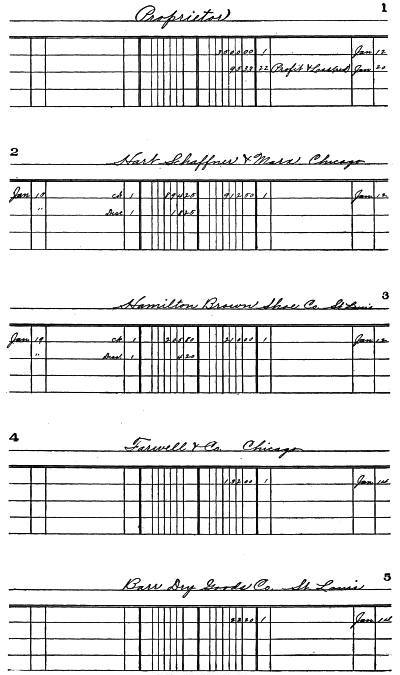 Proprietor 1
350000 1 Jan 12
9533 22 Profit & Loss Jan 20
2
Hart Schaffner & Marx Chicago
Jan 18 ck 1 89425 91250 1 Jan 12
" Disc 1 1825
3
Hamilton Brown Shoe Co St Louis
Jan 19 ck 1 20580 21000 1 Jan 12
" Disc 1 420
4
Farwell & Co. Chicago
1 Jan
5
Barr Dry Goods Co. St Louis
1 Jan